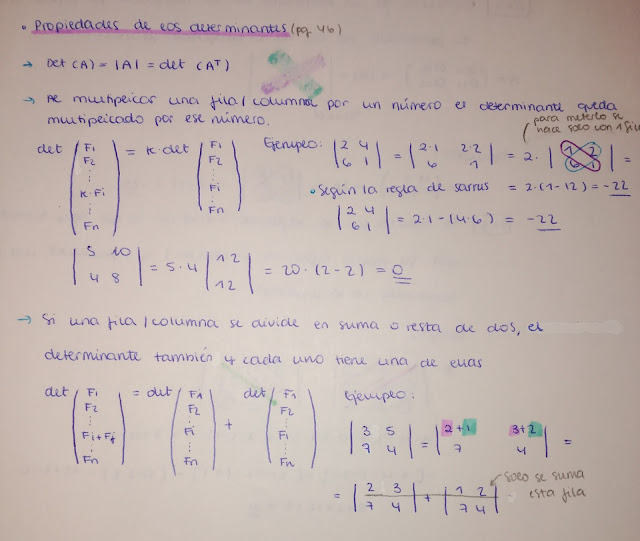 • Propiedades de los determinantes (pg 46)
→ Det (A) = |A| = det (Aᵀ)
→ Al multiplicar una fila/columna por un número el determinante queda
multiplicado por ese número.
para meterlo se
hace solo con 1 fila
det ( F1 F2 ⋮ K·Fi ⋮ Fn ) = K·det ( F1 F2 ⋮ Fi ⋮ Fn )
Ejemplo: |2 4; 6 1| = |2·1 2·2; 6 1| = 2·|1 2; 6 1| =
• Según la regla de sarrus = 2·(1-12) = -22
|2 4; 6 1| = 2·1-(4·6) = -22
|5 10; 4 8| = 5·4 |1 2; 1 2| = 20·(2-2) = 0
→ Si una fila/columna se divide en suma o resta de dos, el
determinante también y cada uno tiene una de ellas
det ( F1 F2 ⋮ Fi+Fj ⋮ Fn ) = det ( F1 F2 ⋮ Fi ⋮ Fn ) + det ( F1 F2 ⋮ Fi ⋮ Fn )
Ejemplo:
|3 5; 7 4| = |2+1 3+2; 7 4| =
= |2 3; 7 4| + |1 2; 7 4|
solo se suma
esta fila